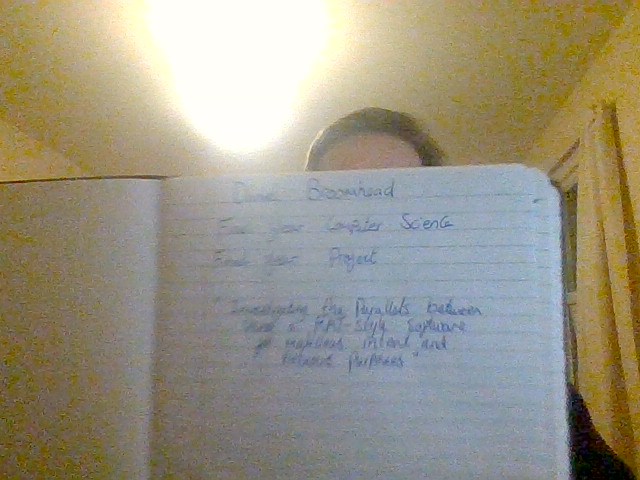 Broomhead
Final year Computer Science
Final year Project
"Investigating the Parallels between
use of RAT-Style Software
for malicious intent and
purposes"